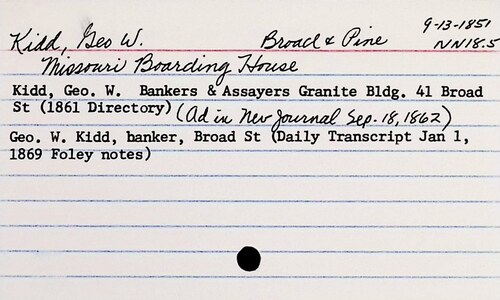 Kidd, Geo W. Broad & Pine 9-13-1851
NN18.5
Missouri Boarding House
Kidd, Geo. W. Bankers & Assayers Granite Bldg. 41 Broad
St (1861 Directory) (Ad in New Journal Sep. 18, 1862)
Geo. W. Kidd, banker, Broad St (Daily Transcript Jan 1,
1869 Foley notes)